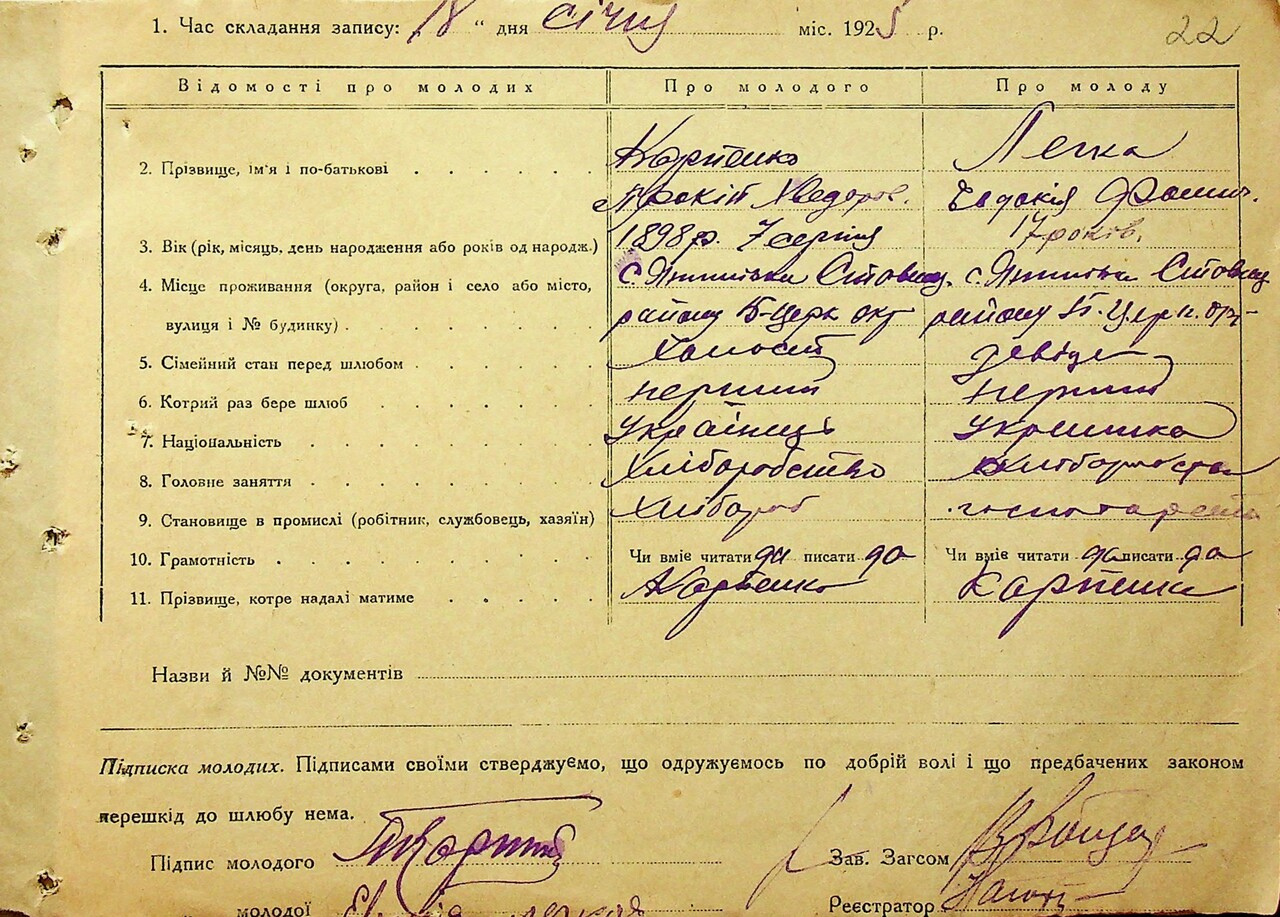 1. Час складання запису: 18 " дня Січня міс. 1925 р.
22
Відомості про молодих Про молодого Про молоду
2. Прізвище, ім'я і по-батькові Карпенко Легка
Прокій Хведоров. Евдокія
3. Вік (рік, місяць, день народження або років од народж.) 1898 р. 7 серпня 17 років.
4. Місце проживання (округа, район і село або місто, с. с.
вулиця і № будинку) району Б-Церк окр району Б. Церк. окр-
5. Сімейний стан перед шлюбом Холостий девіца
6. Котрий раз бере шлюб перший перший
7. Національність Українець Украинка
8. Головне заняття Хліборобство
9. Становище в промислі (робітник, службовець, хазяїн) Хлібороб
10. Грамотність Чи вміє читати да писати да Чи вміє читати да писати да
11. Прізвище, котре надалі матиме Карпенко Карпенко
Назви й №№ документів
Підписка молодих. Підписами своїми стверджуємо, що одружуємось по добрій волі і що предбачених законом
перешкід до шлюбу нема.
Підпис молодого Зав. Загсом
молодої Реєстратор